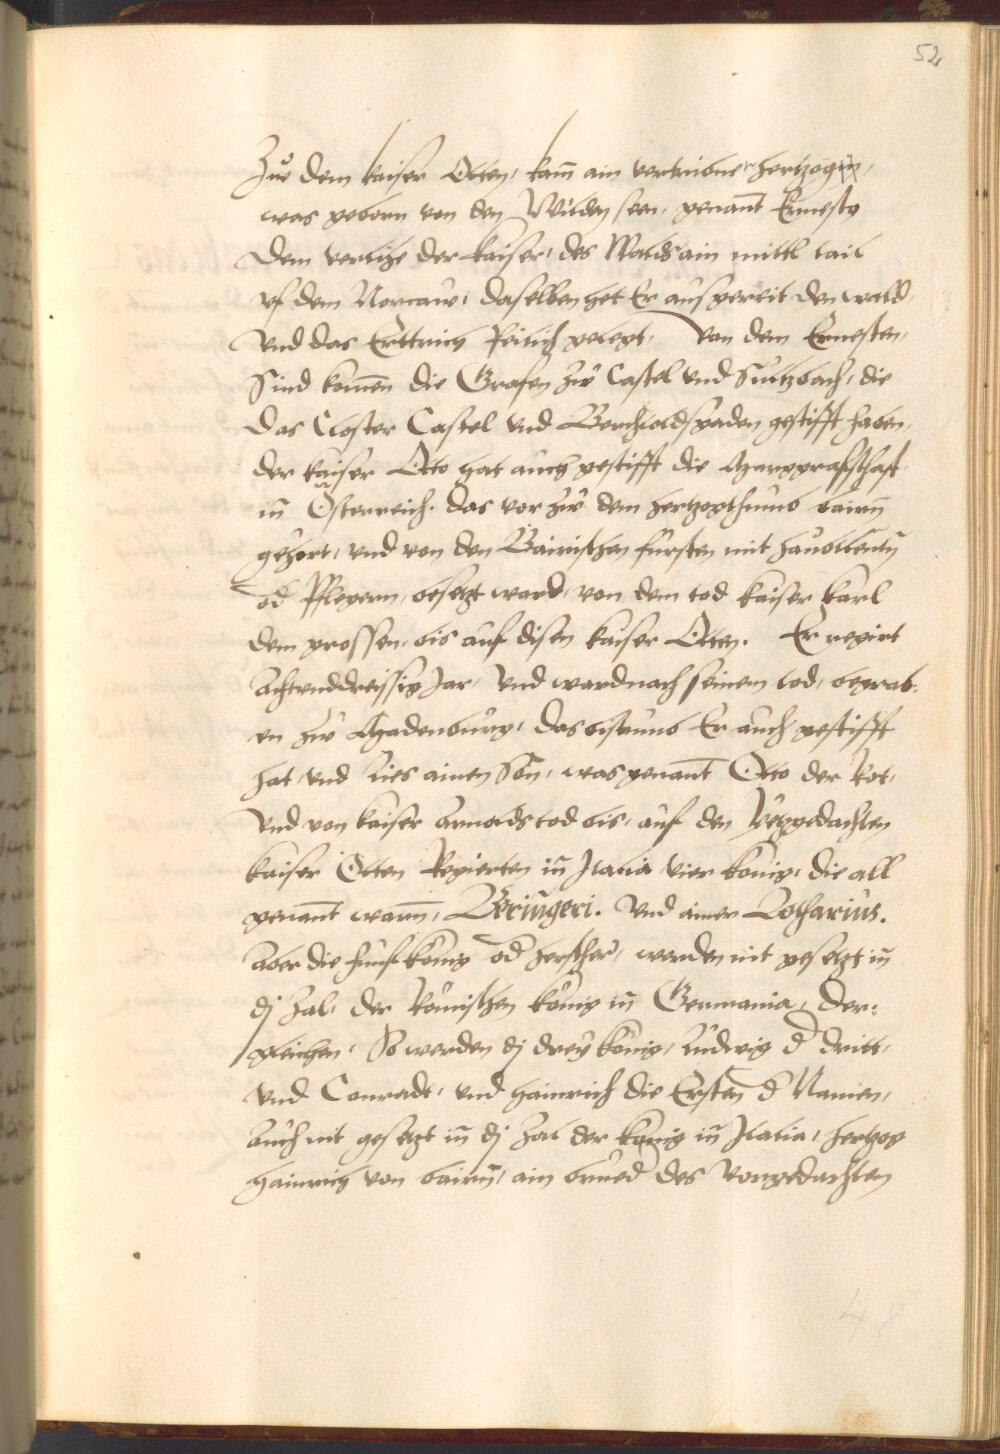 52
Zuͤ dem kaiser Otten, kam̄ ain vertribner hertzog,
was geborn von den Wilden seen, genant̄ Ernesto
dem verlihe der kaiser, des Walds ain mittl tail
vf dem Norcaw, daselben het Er ausgereit den wald,
vnd das Erttrich geleget, Von dem Ernesten,
Sind komen̄ die Grafen zuͤ Castel vnd Sultzbach, die
das Closter Castel vnd Berchtoldsgaden gestifft haben,
der kaiser Otto hat auch gestifft die Marggrafschaft
in̄ Österreich. das vor zuͤ dem hertzogthumb bairn̄
gehort, vnd von den Bairischen fursten mit haubtleuttn̄
od Pflegern, besetzt ward, von dem tod kaiser karl
dem grossen, bis auf disen kaiser Otten. Er regirt
Achtvnddreissig Jar, vnd ward nach seinem tod, begrab:
en zuͤ Magdenburg, das bistumb Er auch gestifft
hat, vnd Lies ainen Son, was genant̄ Otto der Rot,
vnd von kaiser Arnolds tod bis, auf den yetzgedachten
kaiser Otten Regierten in̄ Italia vier konig, die all
genant̄ warn̄, Beringeri. Vnd ainer Lotharius.
Aber die funf konig od herscher, werden nit gesetzt in̄
dj Zal, der Romischen konig in̄ Germania, Der:
gleichen. So werden dj drey konig, Ludwig d dritt,
vnd Conradt, vnd hainrich die Ersten d Namen,
Auch nit gesetzt in̄ dj Zal der konig in̄ Italia, hertzog
hainrich von bairn̄, ain brued des vorgedachten
48